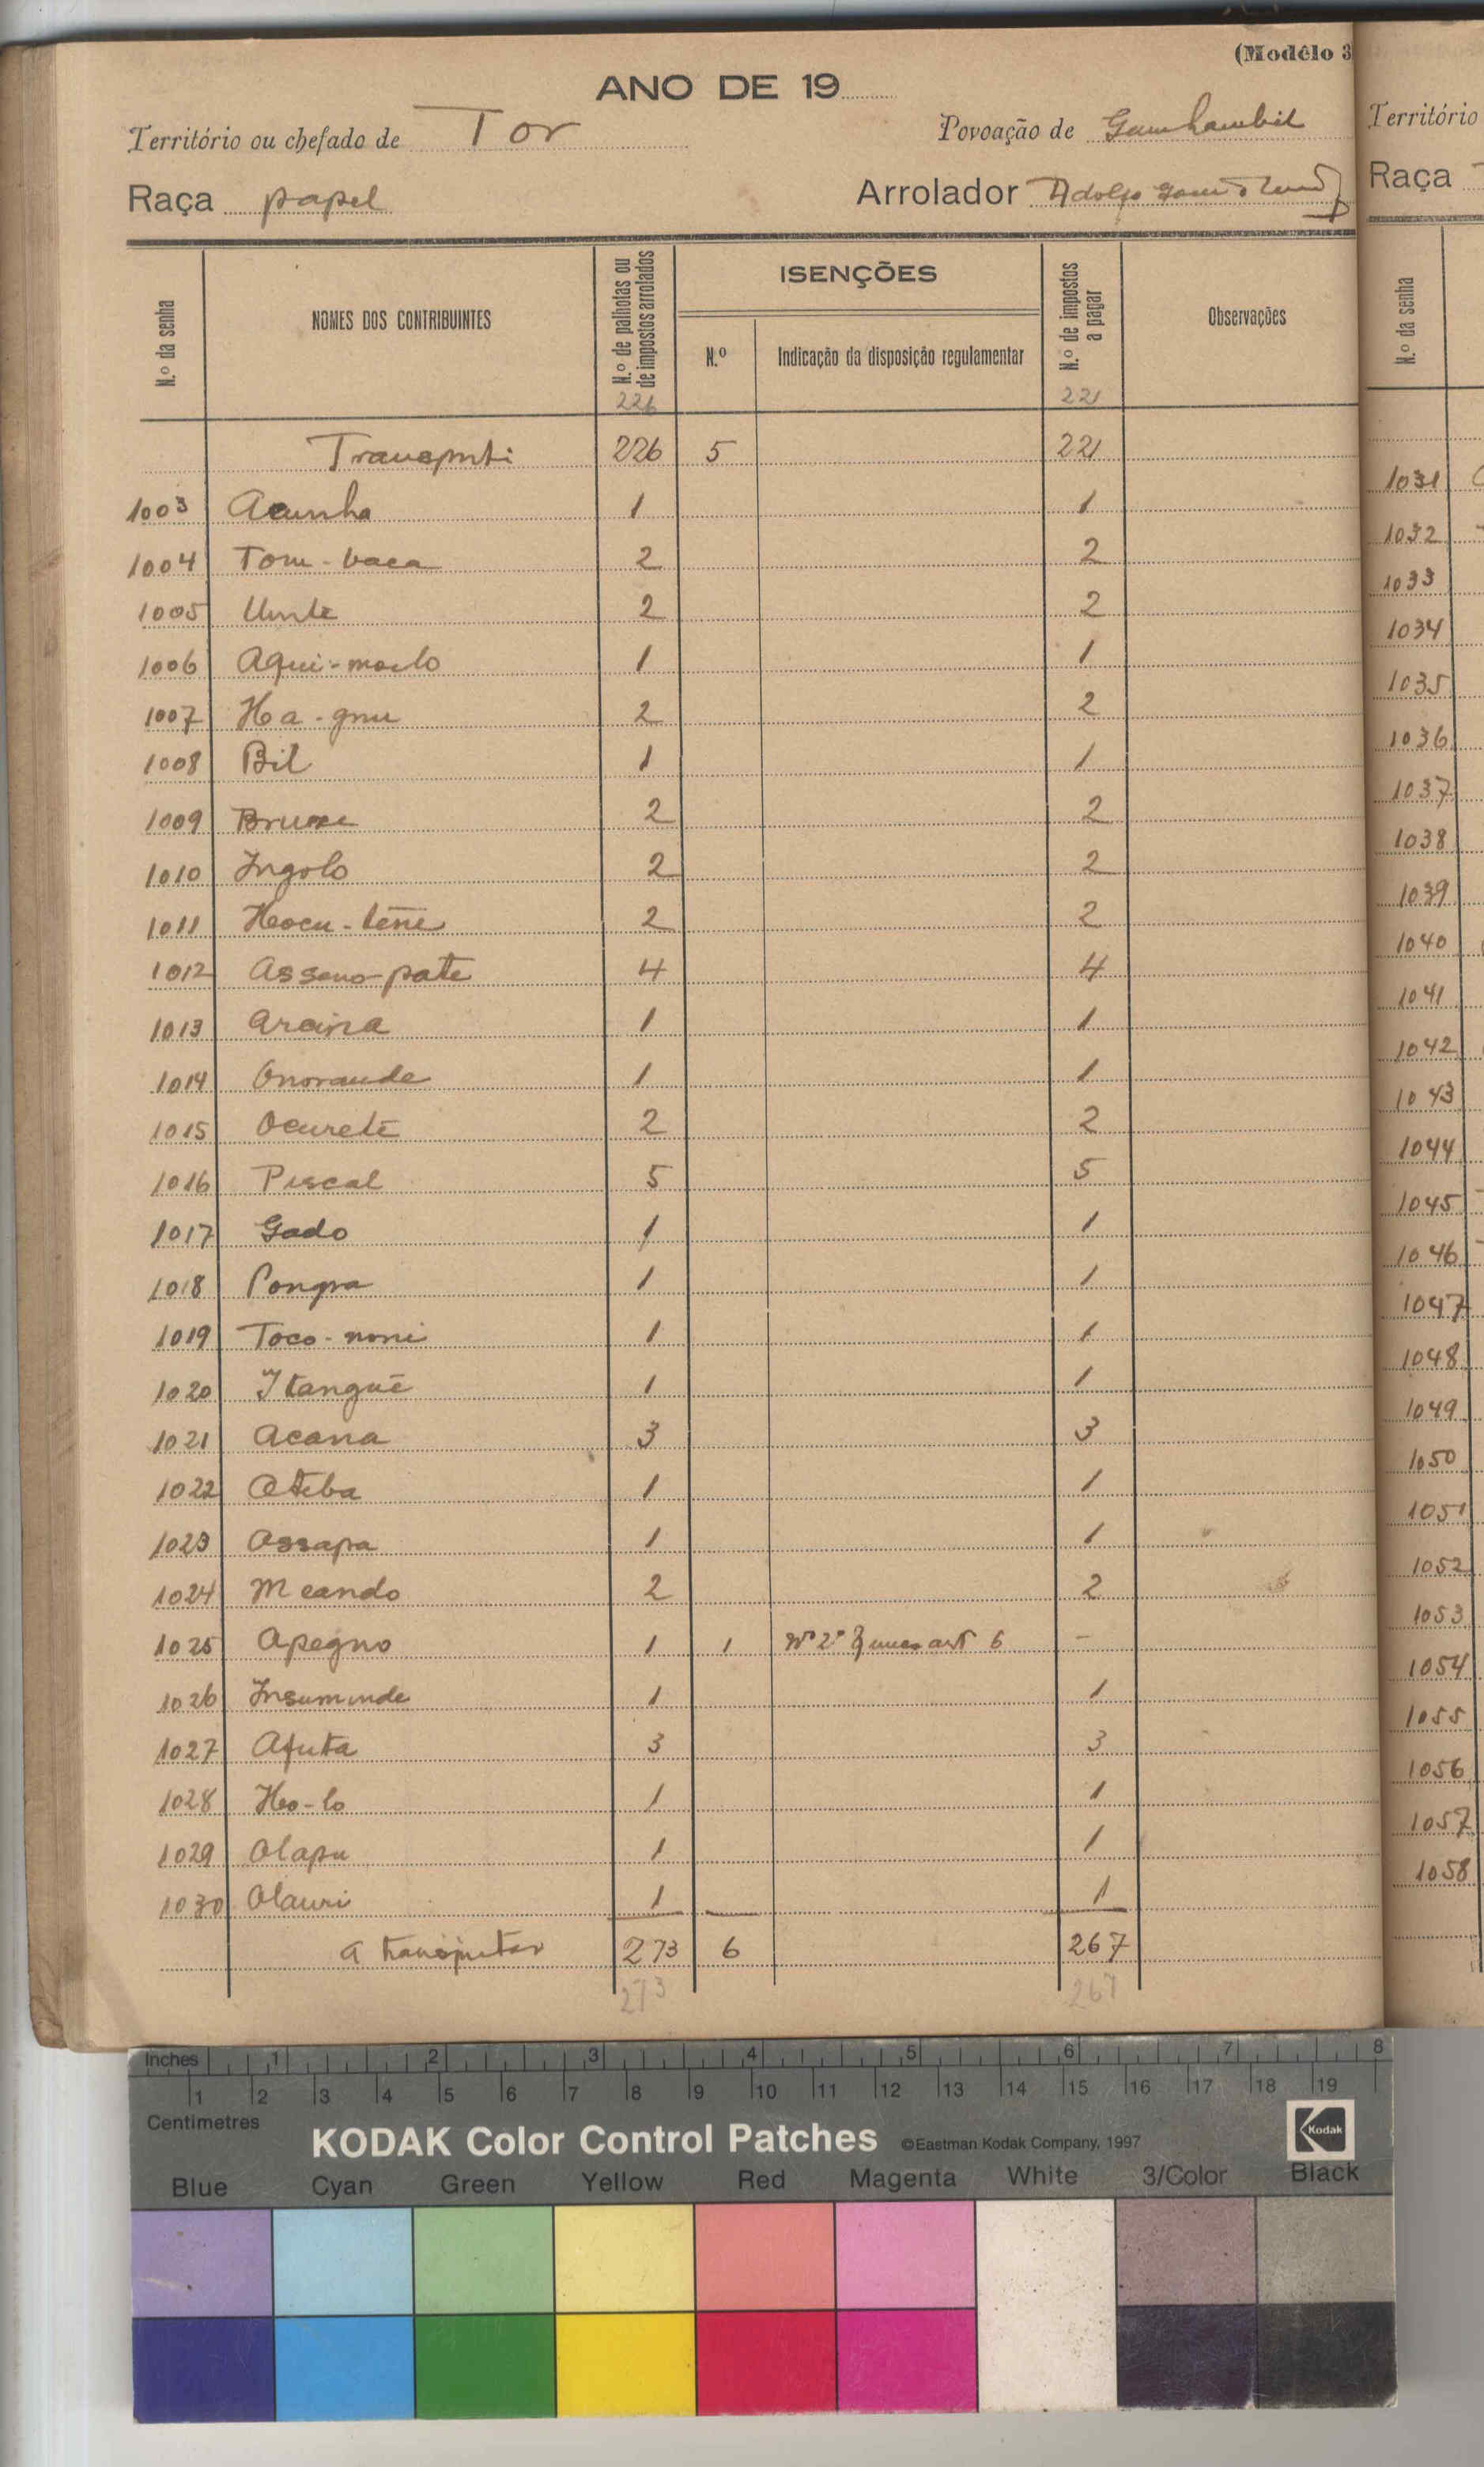 (Modêlo 3
ANO DE 19
Território ou chefado de Tor Povoação de Gamhambil
Raça papel Arrolador Adolfo
N.º da senha NOMES DOS CONTRIBUINTES N.º de palhotas ou de impostos arrolados ISENÇÕES N.º de impostos a pagar Observações
N.º Indicação da disposição regulamentar
226 221
Transporte 226 5 221
1003 Acunha 1 1
1004 Tom-baca 2 2
1005 Unte 2 2
1006 Aqui-maslo 1 1
1007 Ha-gnu 2 2
1008 Bil 1 1
1009 Brume 2 2
1010 Ingolo 2 2
1011 Hocu-tene 2 2
1012 Asseno-pate 4 4
1013 Araina 1 1
1014 Onorande 1 1
1015 Ocurete 2 2
1016 Piscal 5 5
1017 Gado 1 1
1018 Pongra 1 1
1019 Toco-noni 1 1
1020 Itanguē 1 1
1021 Acana 3 3
1022 Ateba 1 1
1023 Assapa 1 1
1024 Meando 2 2
1025 Apegno 1 1 Nº 2º art 6 -
1026 Insuminde 1 1
1027 Afuta 3 3
1028 Ho-lo 1 1
1029 Olapu 1 1
1030 Olauri 1 1
A transportar 273 6 267
273 267
Território
Raça
N.º da senha
1031
1032
1033
1034
1035
1036
1037
1038
1039
1040
1041
1042
1043
1044
1045
1046
1047
1048
1049
1050
1051
1052
1053
1054
1055
1056
1057
1058
Inches 1 2 3 4 5 6 7 8
1 2 3 4 5 6 7 8 9 10 11 12 13 14 15 16 17 18 19
Centimetres
KODAK Color Control Patches ©Eastman Kodak Company, 1997 Kodak
Blue Cyan Green Yellow Red Magenta White 3/Color Black